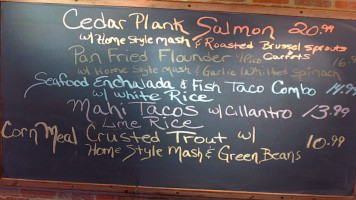 Cedar Plank Salmon 20.99
w/ Home Style mash & Roasted Brussel sprouts
Pan Fried Flounder Carrots
w/ Home Style Mash & Garlic Whilted Spinach
Seafood Enchalada & Fish Taco Combo 14.99
w/ White Rice
Mahi Tacos w/ Cillantro 13.99
Lime Rice
Corn Meal Crusted Trout w/ 10.99
Home Style Mash & Green Beans